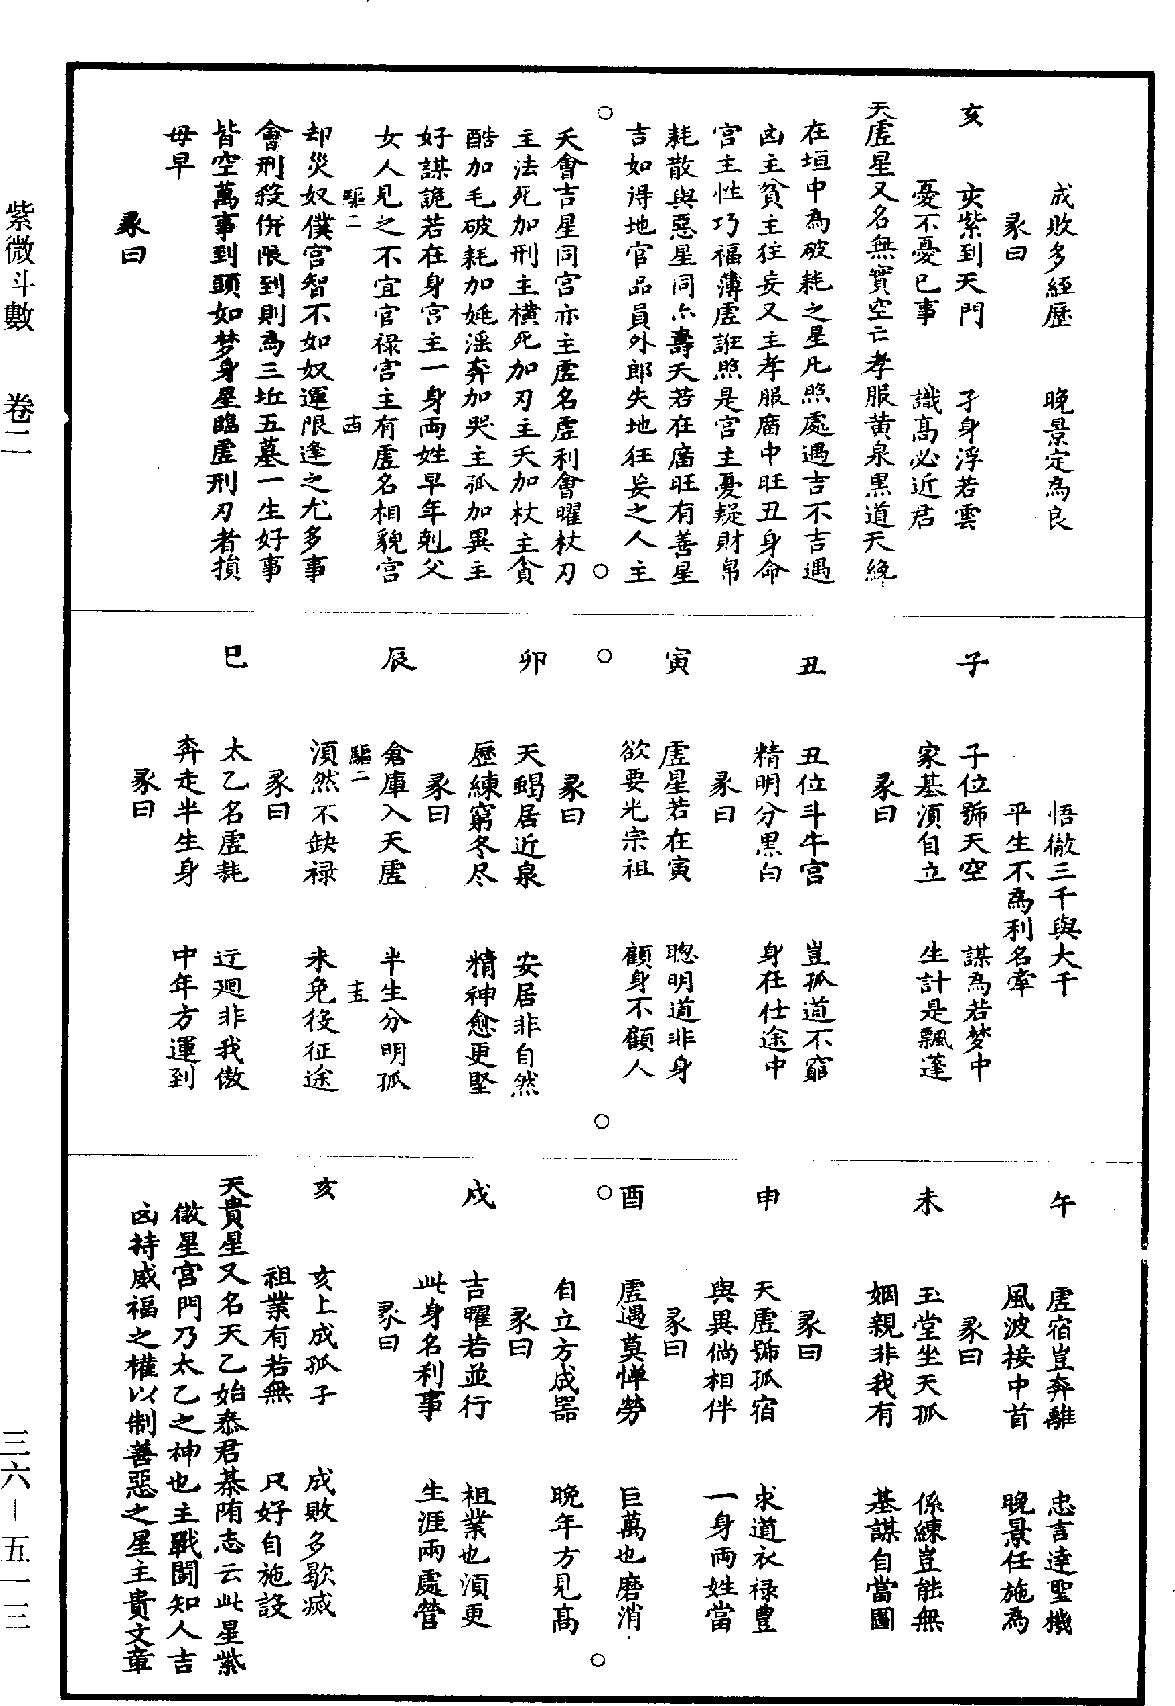 成敗多經歷　晚景定為良
彖曰
亥　亥紫到天門　孑身浮若雲
憂不憂已事　識高必近君
天虛星又名無實空亡孝服黃泉黑道天絶
在垣中為破耗之星凡照處遇吉不吉遇
凶主貧主狂妄又主孝服廟中旺丑身命
宮主性巧福薄虛誑照是宮主憂疑財帛
耗散與惡星同亦壽夭若在廟旺有善星
吉如得地官品員外郎失地狂妄之人主
○　○
夭會吉星同宮亦主虛名虛利會曜杖刃
主法死加刑主橫死加刃主夭加杖主貪
酷加毛破耗加姚淫奔加哭主孤加異主
好謀詭若在身宮主一身兩姓早年剋父
女人見之不宜官祿宮主有虛名相貌宮
驅二　十四
却災奴僕宮智不如奴運限逢之尤多事
會刑殺併限到則為三坵五墓一生好事
皆空萬事到頭如梦身星臨虛刑刃者損
母早
彖曰
悟徹三千與大千
平生不為利名牽
子　子位號天空　謀為若梦中
家基須自立　生計是飄蓬
彖曰
丑　丑位斗牛宮　豈孤道不窮
精明分黑白　身在仕途中
彖曰
寅　虛星若在寅　聰明道非身
欲要光宗祖　顧身不顧人
○　○
彖曰
卯　天蝎居近泉　安居非自然
歷練窮冬尽　精神愈更堅
彖曰
辰　倉庫入天虛　半生分明孤
驅二　十五
須然不缺祿　未免役征途
彖曰
巳　太乙名虛耗　迂廻非我傲
奔走半生身　中年方運到
彖曰
午　虛宿豈奔離　忠言達聖機
風波接中首　晚景任施為
彖曰
未　玉堂坐天孤　係練豈能無
姻親非我有　基謀自當圖
彖曰
申　天虛號孤宿　求道衣祿豊
與異倘相伴　一身兩姓當
彖曰
酉　虛遇莫憚勞　巨萬也磨消
○　○
自立方成器　晚年方見高
彖曰
戌　吉曜若並行　祖業也須更
此身名利事　生涯兩處營
彖曰
亥　亥上成孤子　成敗多歇滅
祖業有若無　只好自施設
天貴星又名天乙始泰君棊陏志云此星紫
微星宮門乃太乙之神也主戰鬪知人吉
凶持威福之權以制善惡之星主貴文章
紫微斗數　卷二
三六－五一三